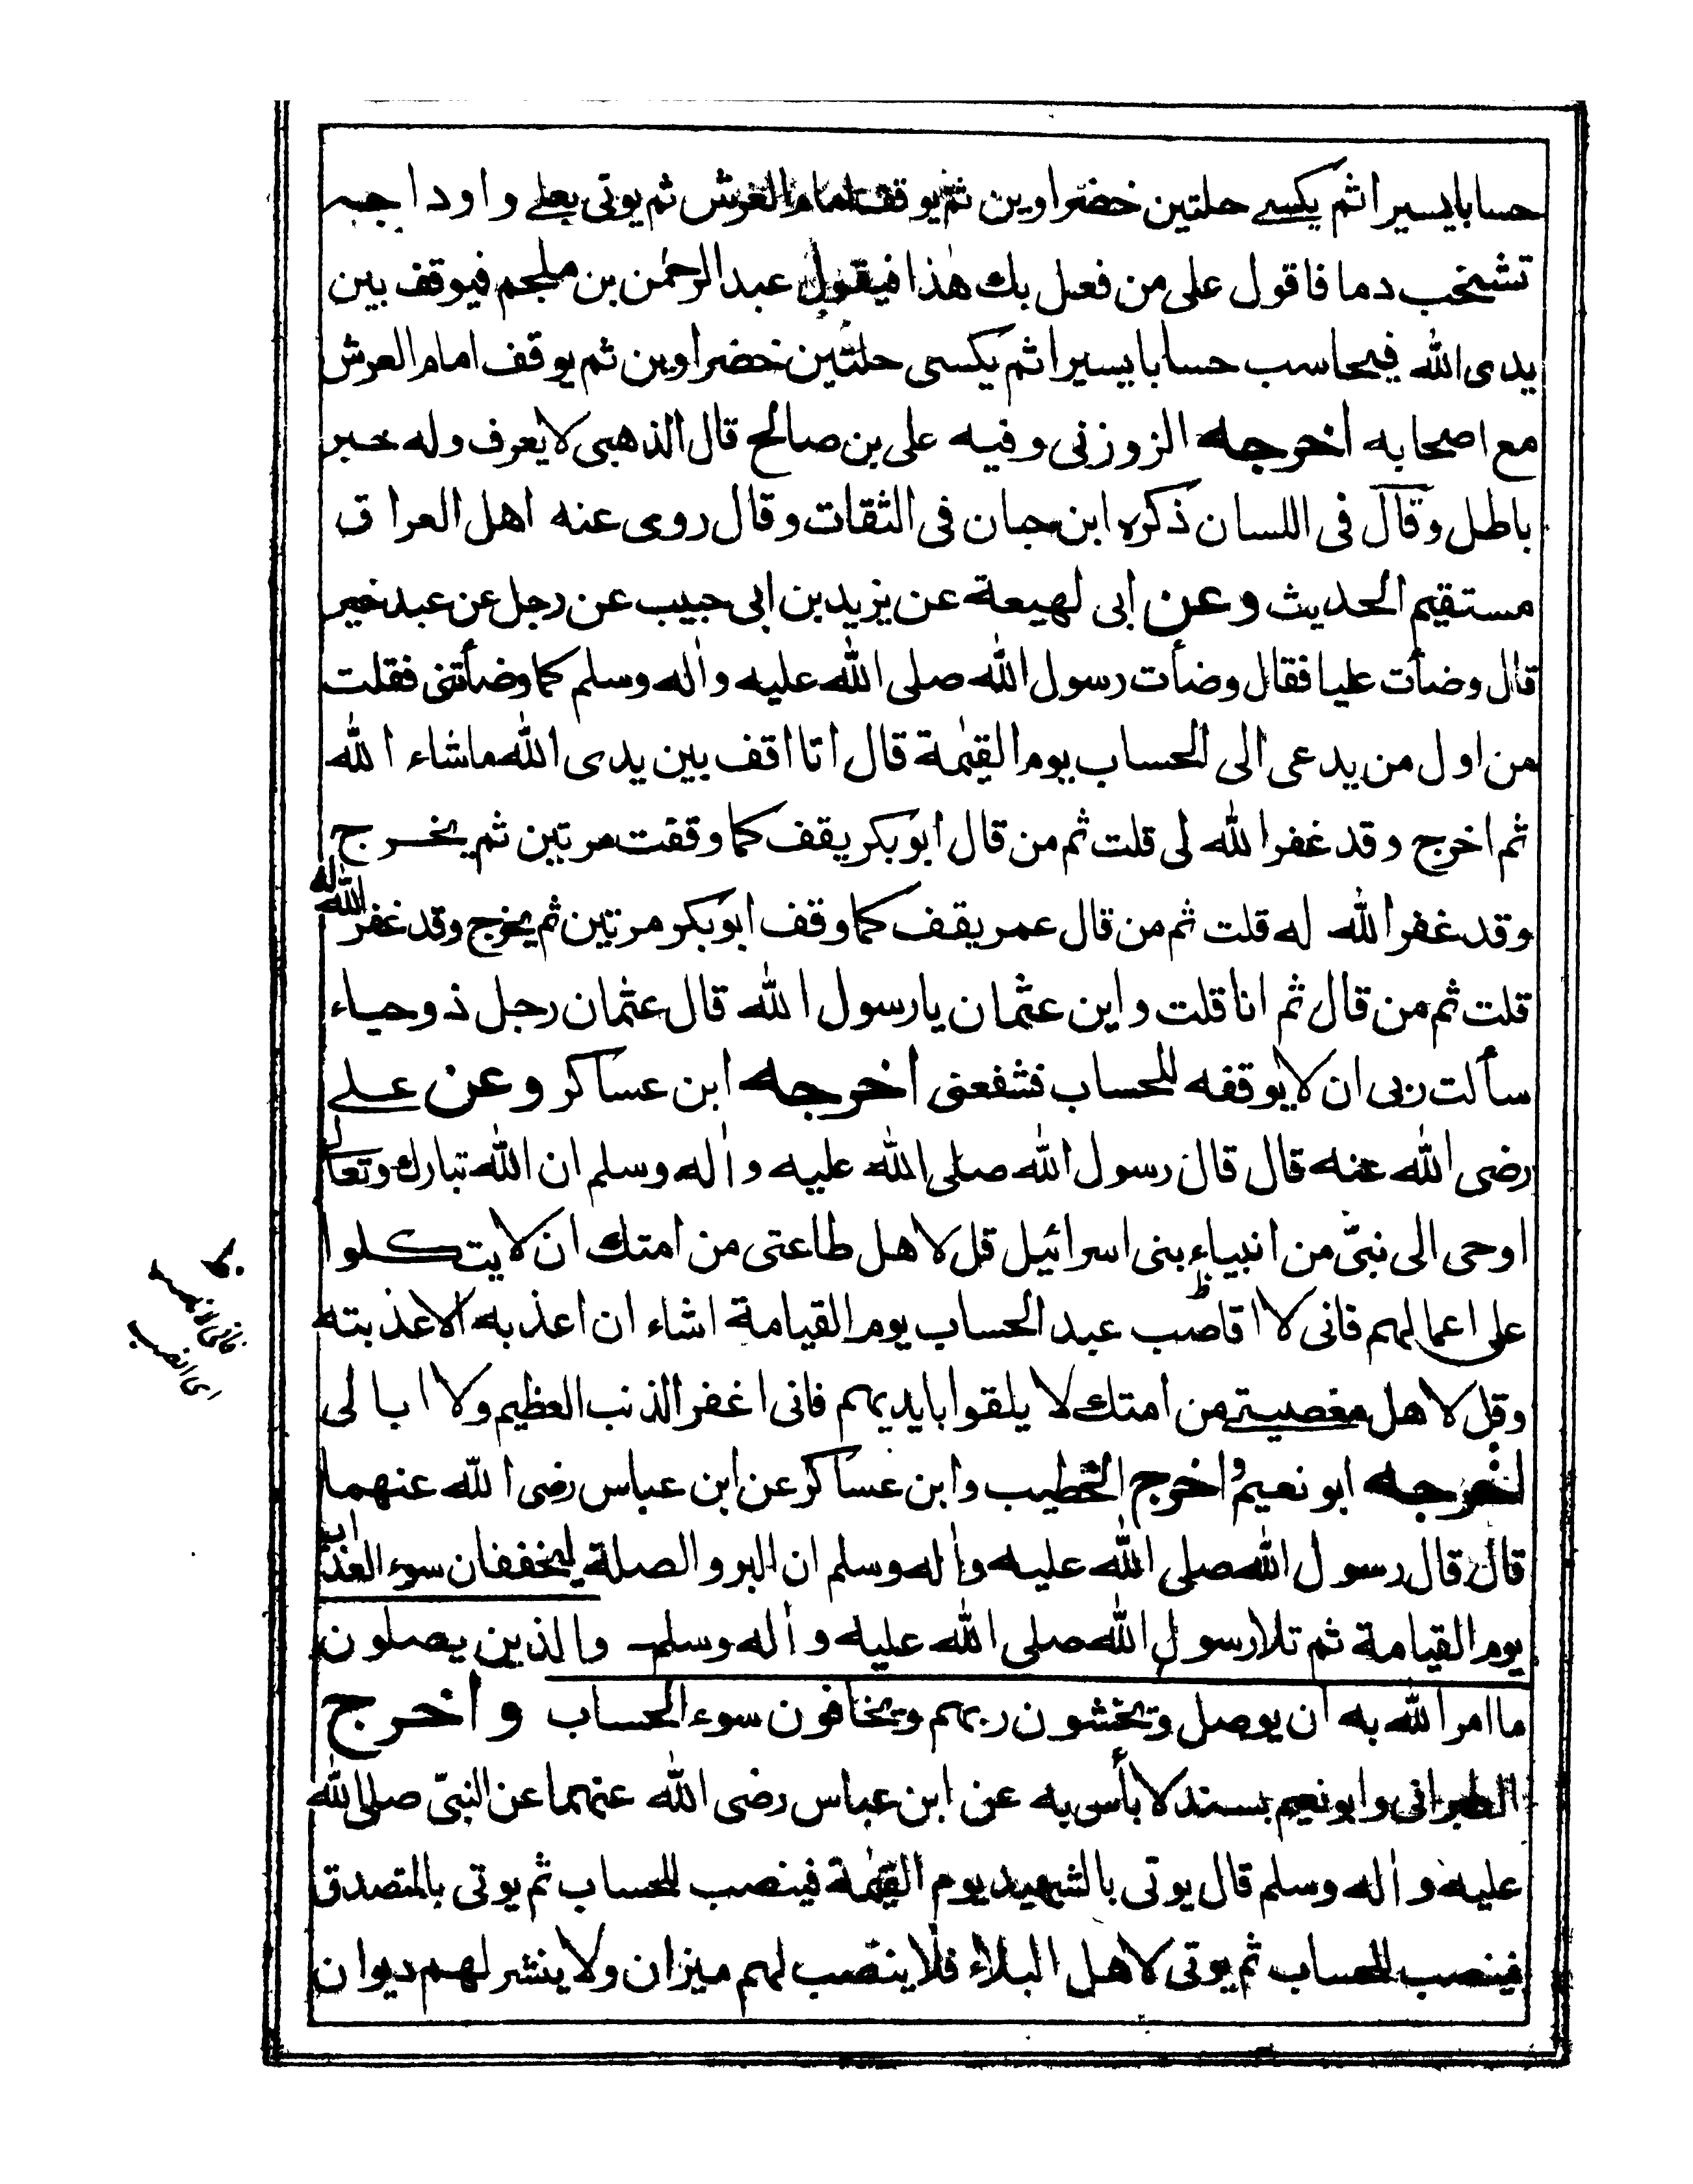 حسابا يسيرا ثم يكسے حلتين خضراوين ثم يوقف امام العرش ثم يوتى بعلے واوداجه
تشخب دما فاقول على من فعل بك هٰذا فيقول عبد الرحمٰن بن ملجم فيوقف بين
يدى الله فيحاسب حسابا يسيرا ثم يكسى حلتين خضراوين ثم يوقف امام العرش
مع اصحابه اخرجه الزوزنى وفيه على بن صالح قال الذهبى لا يعرف وله خبر
باطل وقال فى اللسان ذكره ابن حبان فى الثقات وقال روى عنه اهل العراق
مستقيم الحديث وعن ابى لهيعة عن يزيد بن ابى حبيب عن رجل عن عبد خير
قال وضأت عليا فقال وضأت رسول الله صلى الله عليه واٰله وسلم كما وضأتنى فقلت
من اول من يدعى الى الحساب يوم القيٰمة قال انا اقف بين يدى الله ماشاء الله
ثم اخرج وقد غفر الله لى قلت ثم من قال ابوبكر يقف كما وقفت مرتين ثم يخرج
وقد غفر الله له قلت ثم من قال عمر يقف كما وقف ابوبكر مرتين ثم يخرج وقد غفر الله له
قلت ثم من قال ثم انا قلت واين عثمان يا رسول الله قال عثمان رجل ذو حياء
سألت ربى ان لا يوقفه للحساب فشفعنى اخرجه ابن عساكر وعن علے
رضى الله عنه قال قال رسول الله صلى الله عليه واٰله وسلم ان الله تبارك وتعالى
اوحى الى نبىّ من انبياء بنى اسرائيل قل لاهل طاعتى من امتك ان لا يتكلوا
على اعمالهم فانى لا اقاصب عبد الحساب يوم القيامة اشاء ان اعذبه الا عذبته
وقل لاهل معصيتے من امتك لا يلقوا بايديهم فانى اغفر الذنب العظيم ولا ابالى
اخرجه ابو نعيم واخرج الخطيب وابن عساكر عن ابن عباس رضى الله عنهما
قال قال رسول الله صلى الله عليه واٰله وسلم ان البر والصلة ليخففان سوء العذاب
يوم القيامة ثم تلا رسول الله صلى الله عليه واٰله وسلم والذين يصلون
ما امر الله به ان يوصل ويخشون ربهم ويخافون سوء الحساب واخرج
الطبرانى وابو نعيم بسند لا بأس به عن ابن عباس رضى الله عنهما عن النبىّ صلى الله
عليه واٰله وسلم قال يوتى بالشهيد يوم القيٰمة فينصب للحساب ثم يوتى بالمتصدق
فينصب للحساب ثم يوتى لاهل البلاء فلا ينصب لهم ميزان ولا ينشر لهم ديوان